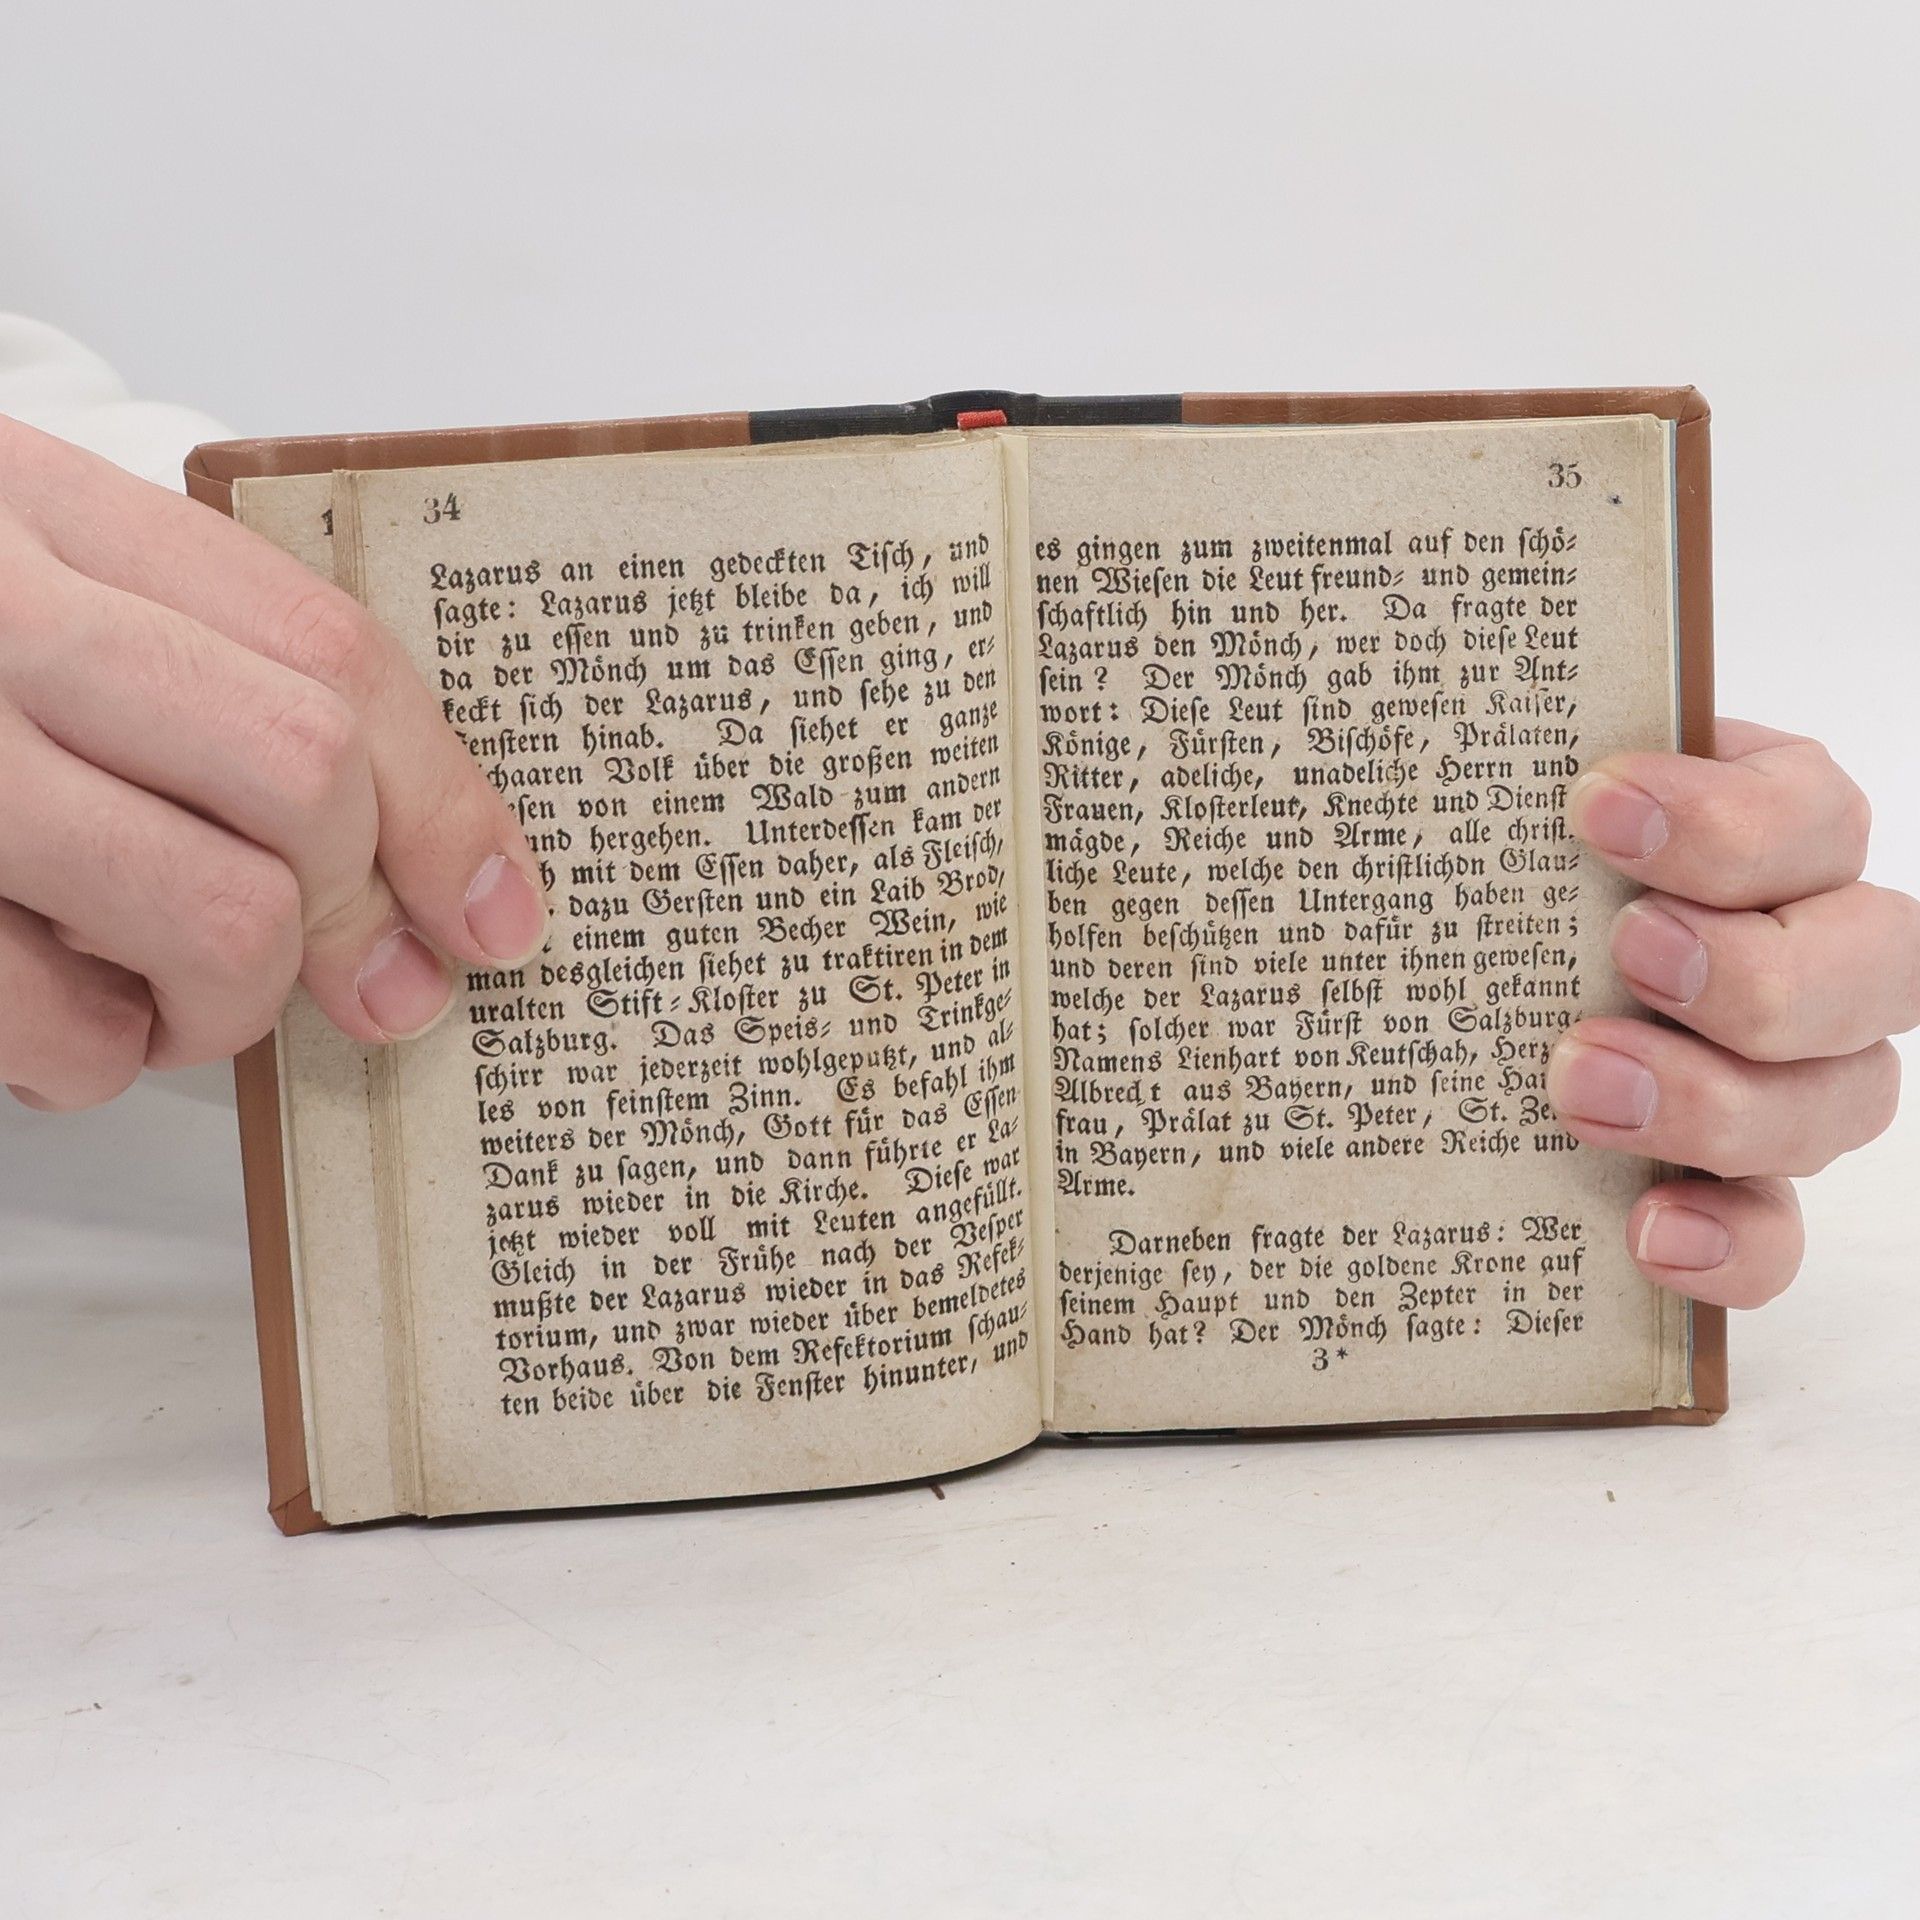 34
Lazarus an einen gedeckten Tiſch, und
ſagte: Lazarus jetzt bleibe da, ich will
dir zu eſſen und zu trinken geben, und
da der Mönch um das Eſſen ging, er⸗
keckt ſich der Lazarus, und ſehe zu den
enſtern hinab. Da ſiehet er ganze
chaaren Volk über die großen weiten
eſen von einem Wald zum andern
und hergehen. Unterdeſſen kam der
h mit dem Eſſen daher, als Fleiſch,
dazu Gerſten und ein Laib Brod,
einem guten Becher Wein, wie
man desgleichen ſiehet zu traktiren in dem
uralten Stift⸗Kloſter zu St. Peter in
Salzburg. Das Speis⸗ und Trinkge⸗
ſchirr war jederzeit wohlgeputzt, und al⸗
les von feinſtem Zinn. Es befahl ihm
weiters der Mönch, Gott für das Eſſen
Dank zu ſagen, und dann führte er La⸗
zarus wieder in die Kirche. Dieſe war
jetzt wieder voll mit Leuten angefüllt.
Gleich in der Frühe nach der Veſper
mußte der Lazarus wieder in das Refek⸗
torium, und zwar wieder über bemeldetes
Vorhaus. Von dem Refektorium ſchau⸗
ten beide über die Fenſter hinunter, und
35
es gingen zum zweitenmal auf den ſchö⸗
nen Wieſen die Leut freund⸗ und gemein⸗
ſchaftlich hin und her. Da fragte der
Lazarus den Mönch, wer doch dieſe Leut
ſein? Der Mönch gab ihm zur Ant⸗
wort: Dieſe Leut ſind geweſen Kaiſer,
Könige, Fürſten, Biſchöfe, Prälaten,
Ritter, adeliche, unadeliche Herrn und
Frauen, Kloſterleut, Knechte und Dienſt
mägde, Reiche und Arme, alle chriſt⸗
liche Leute, welche den chriſtlichdn Glau⸗
ben gegen deſſen Untergang haben ge⸗
holfen beſchützen und dafür zu ſtreiten;
und deren ſind viele unter ihnen geweſen,
welche der Lazarus ſelbſt wohl gekannt
hat; ſolcher war Fürſt von Salzburg,
Namens Lienhart von Keutſchah, Herz
Albrecht aus Bayern, und ſeine Hau
frau, Prälat zu St. Peter, St. Ze
in Bayern, und viele andere Reiche und
Arme.
Darneben fragte der Lazarus: Wer
derjenige ſey, der die goldene Krone auf
ſeinem Haupt und den Zepter in der
Hand hat? Der Mönch ſagte: Dieſer
3*